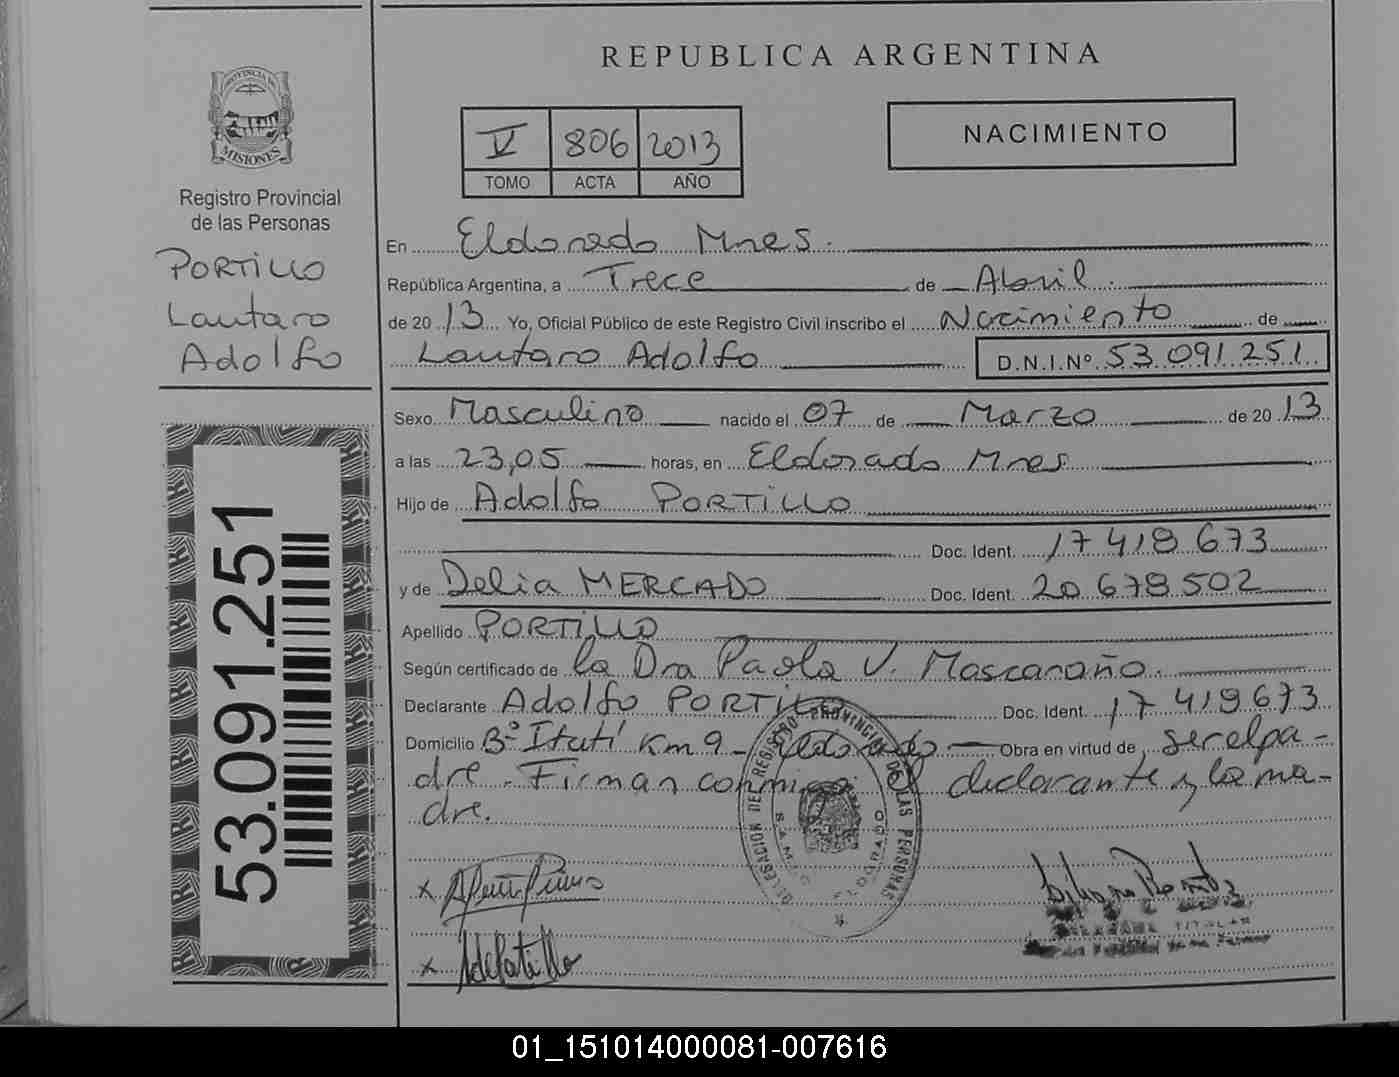 PROVINCIA DE
MISIONES
Registro Provincial
de las Personas
PORTILLO
Lautaro
Adolfo
53.091.251
REPUBLICA ARGENTINA
V 806 2013
TOMO ACTA AÑO
NACIMIENTO
En Eldorado Mnes.
República Argentina, a Trece de Abril
de 20 13 Yo, Oficial Público de este Registro Civil inscribo el Nacimiento de
Lautaro Adolfo D.N.I.Nº 53.091.251
Sexo Masculino nacido el 07 de Marzo de 20 13
a las 23,05 horas, en Eldorado Mnes
Hijo de Adolfo PORTILLO
Doc. Ident. 17 419 673
y de Delia MERCADO Doc. Ident. 20 678 502
Apellido PORTILLO
Según certificado de la Dra Paola V. Mascaraño.
Declarante Adolfo PORTILLO Doc. Ident. 17 419 673
Domicilio Bº Itatí Km 9 - Eldorado Obra en virtud de ser el pa-
dre. Firman conmigo el declarante y la ma-
dre.
DELEGACION DEL REGISTRO PROVINCIAL DE LAS PERSONAS
ELDORADO
x
x
TITULAR
01_151014000081-007616